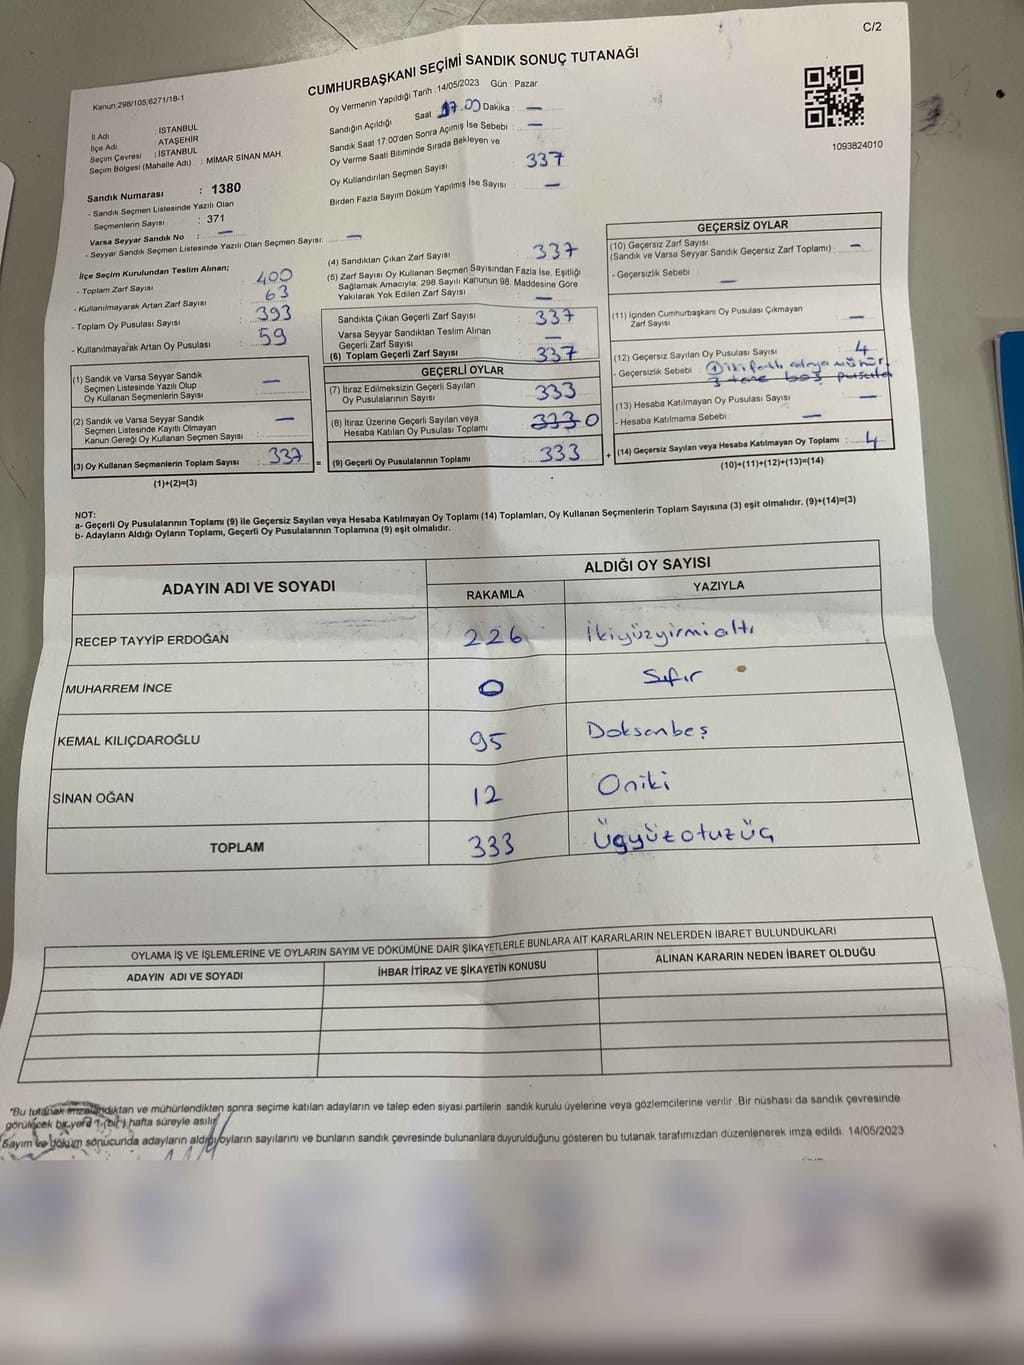 C/2
CUMHURBAŞKANI SEÇİMİ SANDIK SONUÇ TUTANAĞI
Kanun:298/105,6271/18-1
Oy Vermenin Yapıldığı Tarih :14/05/2023 Gün : Pazar
İl Adı : İSTANBUL
İlçe Adı : ATAŞEHİR
Seçim Çevresi : İSTANBUL
Seçim Bölgesi (Mahalle Adı) : MİMAR SİNAN MAH.
Sandık Numarası : 1380
- Sandık Seçmen Listesinde Yazılı Olan
Seçmenlerin Sayısı : 371
Varsa Seyyar Sandık No : —
- Seyyar Sandık Seçmen Listesinde Yazılı Olan Seçmen Sayısı: —
Sandığın Açıldığı Saat 17.00 Dakika : —
Sandık Saat 17:00'den Sonra Açımış İse Sebebi : —
Oy Verme Saati Bitiminde Sırada Bekleyen ve
Oy Kullandırılan Seçmen Sayısı : 337
Birden Fazla Sayım Döküm Yapılmış İse Sayısı : —
1093824010
İlçe Seçim Kurulundan Teslim Alınan;
- Toplam Zarf Sayısı : 400
- Kullanılmayarak Artan Zarf Sayısı : 63
- Toplam Oy Pusulası Sayısı : 393
- Kullanılmayarak Artan Oy Pusulası : 59
(1) Sandık ve Varsa Seyyar Sandık
Seçmen Listesinde Yazılı Olup
Oy Kullanan Seçmenlerin Sayısı : —
(2) Sandık ve Varsa Seyyar Sandık
Seçmen Listesinde Kayıtlı Olmayan
Kanun Gereği Oy Kullanan Seçmen Sayısı : —
(3) Oy Kullanan Seçmenlerin Toplam Sayısı : 337 =
(1)+(2)=(3)
(4) Sandıktan Çıkan Zarf Sayısı : 337
(5) Zarf Sayısı Oy Kullanan Seçmen Sayısından Fazla İse, Eşitliği
Sağlamak Amacıyla; 298 Sayılı Kanunun 98. Maddesine Göre
Yakılarak Yok Edilen Zarf Sayısı : —
Sandıkta Çıkan Geçerli Zarf Sayısı : 337
Varsa Seyyar Sandıktan Teslim Alınan
Geçerli Zarf Sayısı : —
(6) Toplam Geçerli Zarf Sayısı : 337
GEÇERLİ OYLAR
(7) İtiraz Edilmeksizin Geçerli Sayılan
Oy Pusulalarının Sayısı : 333
(8) İtiraz Üzerine Geçerli Sayılan veya
Hesaba Katılan Oy Pusulası Toplamı : 333 0
(9) Geçerli Oy Pusulalarının Toplamı : 333 +
GEÇERSİZ OYLAR
(10) Geçersiz Zarf Sayısı
(Sandık ve Varsa Seyyar Sandık Geçersiz Zarf Toplamı) : —
- Geçersizlik Sebebi : —
(11) İçinden Cumhurbaşkanı Oy Pusulası Çıkmayan
Zarf Sayısı : —
(12) Geçersiz Sayılan Oy Pusulası Sayısı : 4
- Geçersizlik Sebebi : 1 iki farklı adaya mühür,
3 tane boş pusula
(13) Hesaba Katılmayan Oy Pusulası Sayısı : —
- Hesaba Katılmama Sebebi : —
(14) Geçersiz Sayılan veya Hesaba Katılmayan Oy Toplamı : 4
(10)+(11)+(12)+(13)=(14)
NOT:
a- Geçerli Oy Pusulalarının Toplamı (9) ile Geçersiz Sayılan veya Hesaba Katılmayan Oy Toplamı (14) Toplamları, Oy Kullanan Seçmenlerin Toplam Sayısına (3) eşit olmalıdır. (9)+(14)=(3)
b- Adayların Aldığı Oyların Toplamı, Geçerli Oy Pusulalarının Toplamına (9) eşit olmalıdır.
ADAYIN ADI VE SOYADI
ALDIĞI OY SAYISI
RAKAMLA YAZIYLA
RECEP TAYYİP ERDOĞAN 226 İkiyüzyirmialtı
MUHARREM İNCE 0 Sıfır
KEMAL KILIÇDAROĞLU 95 Doksanbeş
SİNAN OĞAN 12 Oniki
TOPLAM 333 Üçyüzotuzüç
OYLAMA İŞ VE İŞLEMLERİNE VE OYLARIN SAYIM VE DÖKÜMÜNE DAİR ŞİKAYETLERLE BUNLARA AİT KARARLARIN NELERDEN İBARET BULUNDUKLARI
ADAYIN ADI VE SOYADI İHBAR İTİRAZ VE ŞİKAYETİN KONUSU ALINAN KARARIN NEDEN İBARET OLDUĞU
*Bu tutanak imzalandıktan ve mühürlendikten sonra seçime katılan adayların ve talep eden siyasi partilerin sandık kurulu üyelerine veya gözlemcilerine verilir. Bir nüshası da sandık çevresinde
görülecek bir yere 1 (bir) hafta süreyle asılır.
Sayım ve döküm sonucunda adayların aldığı oyların sayılarını ve bunların sandık çevresinde bulunanlara duyurulduğunu gösteren bu tutanak tarafımızdan düzenlenerek imza edildi. 14/05/2023